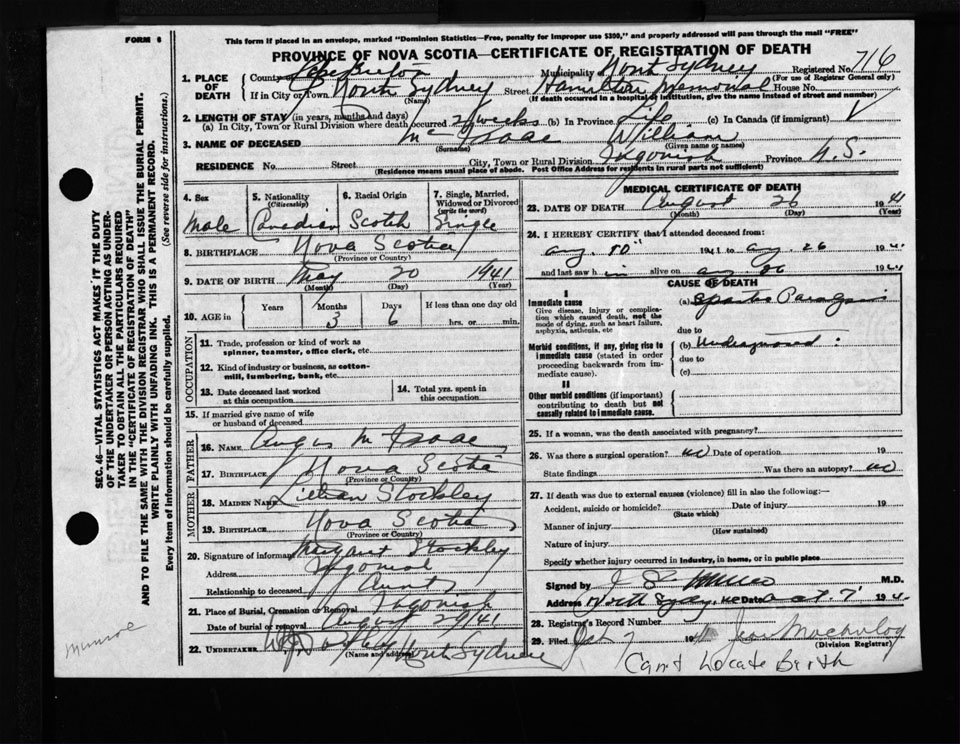 FORM 6
This form if placed in an envelope, marked "Dominion Statistics—Free, penalty for improper use $300," and properly addressed will pass through the mail "FREE"
PROVINCE OF NOVA SCOTIA—CERTIFICATE OF REGISTRATION OF DEATH
1. PLACE OF DEATH County of Cape Breton Municipality of North Sydney Registered No. 716
(For use of Registrar General only)
If in City or Town North Sydney Street Hamilton Memorial House No.
(Name) (If death occurred in a hospital or institution, give the name instead of street and number)
2. LENGTH OF STAY (in years, months and days)
(a) In City, Town or Rural Division where death occurred 2 weeks (b) In Province Life (c) In Canada (if immigrant)
3. NAME OF DECEASED McIsaac William
(Surname) (Given name or names)
RESIDENCE No. Street City, Town or Rural Division Ingonish Province N.S.
(Residence means usual place of abode. Post Office Address for residents in rural parts not sufficient)
4. Sex Male
5. Nationality (Citizenship) Canadian
6. Racial Origin Scotch
7. Single, Married, Widowed or Divorced (write the word) Single
8. BIRTHPLACE Nova Scotia
(Province or Country)
9. DATE OF BIRTH May 20 1941
(Month) (Day) (Year)
10. AGE in Years Months 3 Days 6 If less than one day old hrs. or min.
OCCUPATION
11. Trade, profession or kind of work as spinner, teamster, office clerk, etc.
12. Kind of industry or business, as cotton-mill, lumbering, bank, etc.
13. Date deceased last worked at this occupation
14. Total yrs. spent in this occupation
15. If married give name of wife or husband of deceased
FATHER
16. NAME Angus McIsaac
17. BIRTHPLACE Nova Scotia
MOTHER
18. MAIDEN NAME Lillian Stockley
19. BIRTHPLACE Nova Scotia
(Province or Country)
20. Signature of informant Margaret Stockley
Address Ingonish
Relationship to deceased Aunt
21. Place of Burial, Cremation or Removal Ingonish
Date of burial or removal August 29/41
22. UNDERTAKER North Sydney
(Name and address)
MEDICAL CERTIFICATE OF DEATH
23. DATE OF DEATH August 26 1941
(Month) (Day) (Year)
24. I HEREBY CERTIFY that I attended deceased from:
Aug. 10" 1941 to Aug. 26 1941
and last saw him alive on Aug. 26 1941
CAUSE OF DEATH
I
Immediate cause (a)
Give disease, injury or complication which caused death, not the mode of dying, such as heart failure, asphyxia, asthenia, etc
due to
Morbid conditions, if any, giving rise to immediate cause (stated in order proceeding backwards from immediate cause).
(b) Undiagnosed
due to
(c)
II
Other morbid conditions (if important) contributing to death but not causally related to immediate cause.
25. If a woman, was the death associated with pregnancy?
26. Was there a surgical operation? no Date of operation 19
State findings Was there an autopsy? no
27. If death was due to external causes (violence) fill in also the following:—
Accident, suicide or homicide? Date of injury 19
(State which)
Manner of injury
(How sustained)
Nature of injury
Specify whether injury occurred in industry, in home, or in public place
Signed by M.D.
Address North Sydney Date Oct. 7 1941
28. Registrar's Record Number
29. Filed Oct 7 1941
(Division Registrar)
Cant Locate Birth
SEC. 46—VITAL STATISTICS ACT MAKES IT THE DUTY OF THE UNDERTAKER OR PERSON ACTING AS UNDERTAKER TO OBTAIN ALL THE PARTICULARS REQUIRED IN THE "CERTIFICATE OF REGISTRATION OF DEATH"
AND TO FILE THE SAME WITH THE DIVISION REGISTRAR WHO SHALL ISSUE THE BURIAL PERMIT.
WRITE PLAINLY WITH UNFADING INK. THIS IS A PERMANENT RECORD.
Every item of information should be carefully supplied. (See reverse side for instructions.)
Munroe